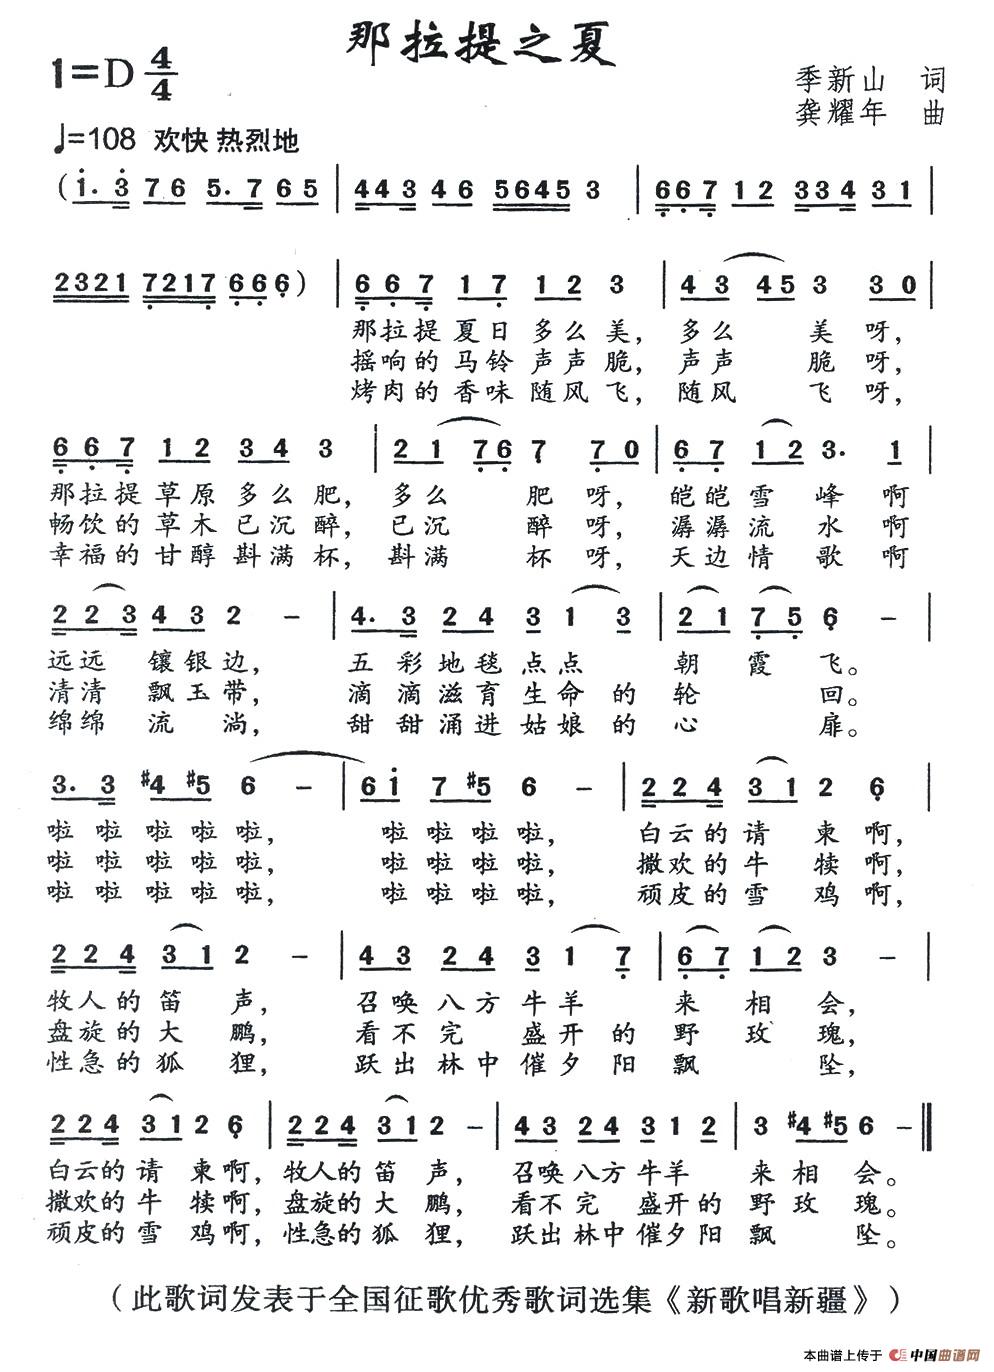 那拉提之夏
1=D 4/4
季新山 词
龚耀年 曲
♩=108 欢快 热烈地
(1̇. 3̇ 7 6 5. 7 6 5 | 4 4 3 4 6 5 6 4 5 3 | 6̣ 6̣ 7̣ 1 2 3 3 4 3 1 |
2 3 2 1 7̣ 2 1 7̣ 6̣ 6̣ 6̣) | 6̣ 6̣ 7̣ 1 7̣ 1 2 3 | 4 3 4 5 3 3 0 |
那拉提夏日多么美，多么 美呀，
摇响的马铃声声脆，声声 脆呀，
烤肉的香味随风飞，随风 飞呀，
6̣ 6̣ 7̣ 1 2 3 4 3 | 2 1 7̣ 6̣ 7̣ 7̣ 0 | 6̣ 7̣ 1 2 3. 1 |
那拉提草原多么肥，多么 肥呀，皑皑雪峰啊
畅饮的草木已沉醉，已沉 醉呀，潺潺流水啊
幸福的甘醇斟满杯，斟满 杯呀，天边情歌啊
2 2 3 4 3 2 - | 4. 3 2 4 3 1 3 | 2 1 7̣ 5̣ 6̣ - |
远远 镶银边，五彩地毯点点 朝霞飞。
清清 飘玉带，滴滴滋育生命的轮 回。
绵绵 流淌，甜甜涌进姑娘的心 扉。
3. 3 #4 #5 6 - | 6 1̇ 7 #5 6 - | 2 2 4 3 1 2 6̣ |
啦啦啦啦啦，啦啦啦啦，白云的请柬啊，
啦啦啦啦啦，啦啦啦啦，撒欢的牛犊啊，
啦啦啦啦啦，啦啦啦啦，顽皮的雪鸡啊，
2 2 4 3 1 2 - | 4 3 2 4 3 1 7̣ | 6̣ 7̣ 1 2 3 - |
牧人的笛声，召唤八方牛羊 来相会，
盘旋的大鹏，看不完 盛开的野玫瑰，
性急的狐狸，跃出林中催夕阳飘 坠，
2 2 4 3 1 2 6̣ | 2 2 4 3 1 2 - | 4 3 2 4 3 1 2 | 3 #4 #5 6 - ||
白云的请柬啊，牧人的笛声，召唤八方牛羊 来相会。
撒欢的牛犊啊，盘旋的大鹏，看不完 盛开的野玫瑰。
顽皮的雪鸡啊，性急的狐狸，跃出林中催夕阳飘 坠。
（此歌词发表于全国征歌优秀歌词选集《新歌唱新疆》）
本曲谱上传于 中国曲谱网